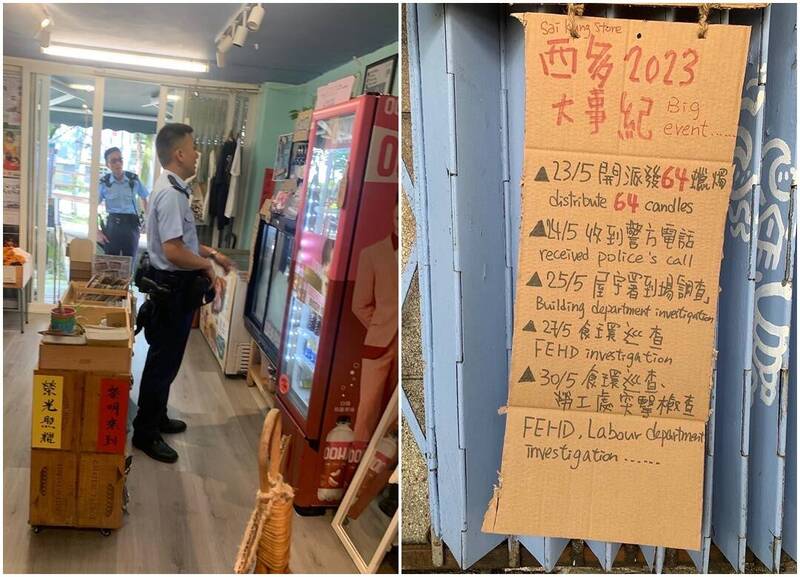 榮光照耀
黎明來到
HOO
Sai Kung Store
西多 2023
大事紀 Big
event......
▲23/5 開派發64蠟燭
distribute 64 candles
▲24/5 收到警方電話
received police's call
▲25/5 屋宇署到場調查
Building department investigation
▲27/5 食環巡查
FEHD investigation
▲30/5 食環巡查、
勞工處突擊檢查
FEHD, Labour department
investigation......